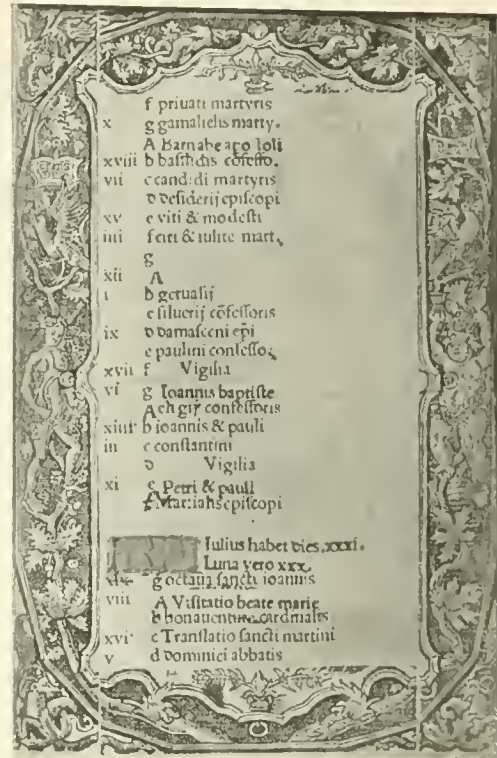 f priuati martyris
x g gamalielis marty.
A Barnabe apo ſoli
xviii b baſilidis cõfeſſo.
vii c candidi martyris
d deſiderij epiſcopi
xv e viti & modeſti
iiii f ciri & iulite mart.
g
xii A
i b geruaſij
c ſiluerij cõfeſſoris
ix d damaſceni epĩ
e paulini confeſſo.
xvii f Vigilia
vi g Ioannis baptiſte
A eligij confeſſoris
xiiii b ioannis & pauli
iii c conſtantini
d Vigilia
xi e Petri & pauli
f Martialis epiſcopi
Iulius habet dies.xxxi.
Luna vero xxx.
xix g octaua ſancti ioannis
viii A Viſitatio beate marie
b bonauenture cardinalis
xvi c Tranſlatio ſancti martini
v d dominici abbatis